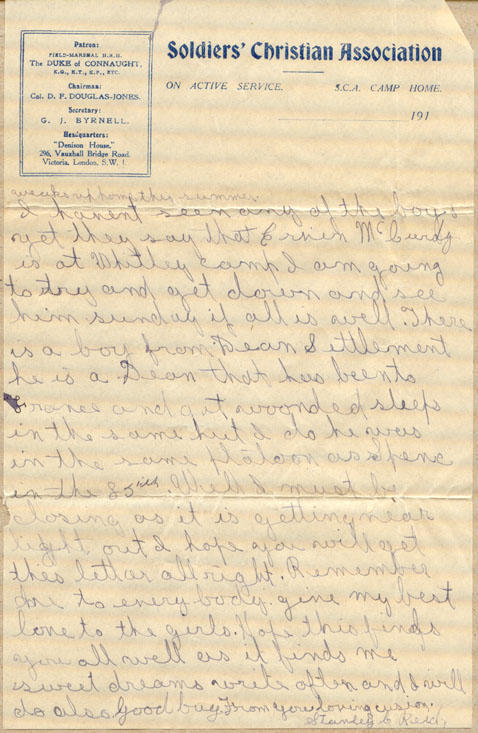 Patron:
FIELD-MARSHAL H.R.H.
The DUKE of CONNAUGHT,
K.G., K.T., K.P., ETC.
Chairman:
Col. D. F. DOUGLAS-JONES.
Secretary:
G. J. BYRNELL.
Headquarters:
"Denison House,"
296, Vauxhall Bridge Road.
Victoria, London, S.W. 1.
Soldiers' Christian Association
ON ACTIVE SERVICE. S.C.A. CAMP HOME.
191
weeks up home this summer.
I havent seen any of the boys
yet they say that Ervin McCurdy
is at Whitley camp I am going
to try and get down and see
him sunday if all is well. There
is a boy from Dean Settlement
he is a Dean that has been to
France and got woonded sleeps
in the same hut I do he was
in the same Platoon as Spenc
in the 85ith. Well I must be
closing as it is getting near
light out I hope you will get
this letter allright. Remember
me to every body. give my best
love to the girls. Hope this finds
you all well as it finds me
sweet dreams write often and I will
do also. Good buy. From you loving cusion.
Stanley C Reid,